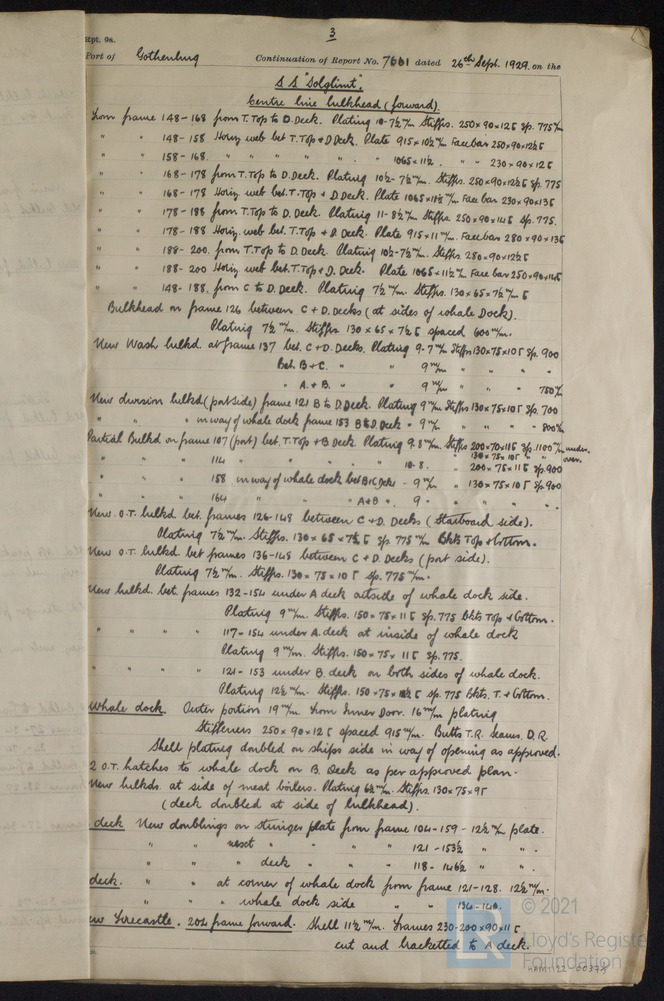 3
Rpt. 9a.
Port of Gothenburg Continuation of Report No. 7661 dated 26th Sept. 1929. on the
S S "Solglimt".
Centre line bulkhead (forward).
From frame 148-168 from T. Top to D. Deck. Plating 10-7½ m/m Stiffrs. 250×90×12 [ sp. 775 m/m
" " 148-158 Horiz. web bet T. Top & D Deck. Plate 915×10½ m/m Face bar 250×90×12½ [
" " 158-168. " " " " " " 1065×11½. " " 230×90×12 [
" " 168-178 from T. Top to D. Deck. Plating 10½-7½ m/m. Stiffrs. 250×90×12½ [ sp. 775
" " 168-178 Horiz. web bet. T. Top & D. Deck. Plate 1065×11½ m/m Face bar 230×90×13 [
" " 178-188 from T. Top to D. Deck. Plating 11-8½ m/m Stiffrs. 250×90×14 [ sp. 775.
" " 178-188 Horiz. web bet. T. Top & D. Deck. Plate 915×11 m/m. Face bar 280×90×13 [
" " 188-200. from T. Top to D. Deck. Plating 10½-7½ m/m. Stiffrs. 280×90×12½ [
" " 188-200 Horiz. web bet. T. Top & D. Deck. Plate 1065×11½ m/m Face bar 250×90×14 [
" " 148-188. from C to D. Deck. Plating 7½ m/m. Stiffrs. 130×65×7½ [
Bulkhead on frame 126 between C + D. Decks (at sides of whale Dock).
Plating 7½ m/m. Stiffrs. 130×65×7½ [ spaced 600 m/m.
New Wash bulkd. at frame 137 bet. C + D. Decks. Plating 9-7 m/m Stiffrs 130×75×10 [ sp. 900
Bet. B + C. " " 9 m/m " " "
" A. + B. " " 9 m/m " " " 750 m/m
New division bulkd (port side) frame 121 B to D. Deck. Plating 9 m/m Stiffrs 130×75×10 [ sp. 700
" " " in way of whale dock frame 153 B to D. Deck " 9 m/m " " 800 m/m
Partial Bulkd on frame 107 (port) bet. T. Top + B Deck. Plating 9.8 m/m. Stiffrs 200×70×11 [ sp. 1100 m/m under.
" " " 114 " " " " 10-8. " 130×75×10 [ " " over.
200×75×11 [ sp. 900
" " " 158 in way of whale dock bet B & C Decks - 9 m/m " 130×75×10 [ sp. 900
" " " 164 " " " A & B " 9 " " " "
New. O.T. bulkd. bet. frames 126-148 between C + D. Decks (Starboard side).
Plating 7½ m/m. Stiffrs. 130×65×7½ [ sp. 775 m/m Bkts Top & Bottom.
New O.T. bulkd. bet frames 136-148 between C + D. Decks (port side).
Plating 7½ m/m. Stiffrs. 130×75×10 [ sp. 775 m/m.
New bulkd. bet. frames 132-154 under A deck outside of whale dock side.
Plating 9 m/m. Stiffrs. 150×75×11 [ sp. 775 bkts Top & Bottom.
" " " " 117-154 under A. deck at inside of whale dock
Plating 9 m/m. Stiffrs. 150×75×11 [ sp. 775.
" " " " 121-153 under B. deck on both sides of whale dock.
Plating 12½ m/m. Stiffrs. 150×75× [ sp. 775 Bkts. T. & Bottom.
Whale dock. Outer portion 19 m/m. From Inner Door. 16 m/m plating
Stiffeners 250×90×12 [ spaced 915 m/m. Butts T.R. Seams. D.R.
Shell plating doubled on ships side in way of opening as approved.
2 O.T. hatches to whale dock on B. Deck as per approved plan.
New bulkds. at side of meat boilers. Plating 6½ m/m. Stiffrs. 130×75×9 [
(deck doubled at side of bulkhead).
deck New doublings on stringer plate from frame 104-159 - 12½ m/m plate.
" " next " " " 121-153½ " " .
" " deck " " " 118-146½ " " .
deck. " " at corner of whale dock from frame 121-128. 12½ m/m.
" " " whale dock side " " 136-140.
ew Forecastle. 204 frame forward. Shell 11½ m/m. Frames 230-200×90×11 [
cut and bracketted to A deck.
© 2021
Lloyd's Register
Foundation